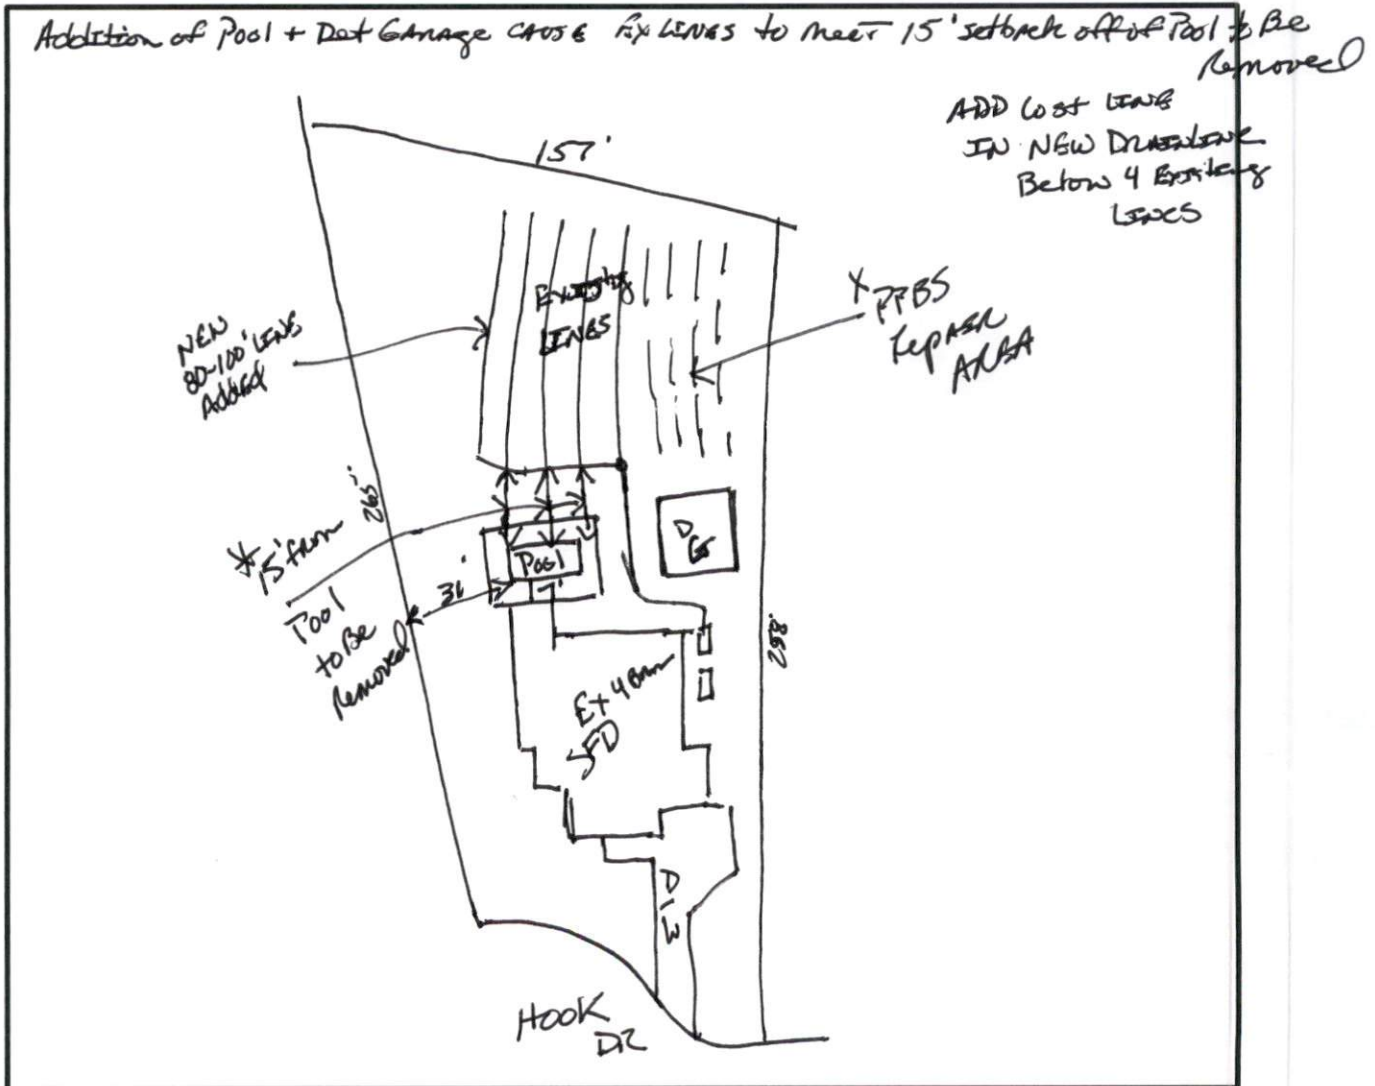 Addition of Pool + Det GArage CAUSE Ex LINES to meet 15' setback off of Pool to Be
Removed
ADD Lost LINE
IN NEW DRAINLINE
Below 4 Existing
LINES
157'
Existing
LINES
X PPBS
repAIR
AREA
NEW
80-100' LINE
Added
265'
* 15' from
Pool
to Be
Removed
Pool
DG
Ex 4 Brm
SFD
D/W
HOOK
DR